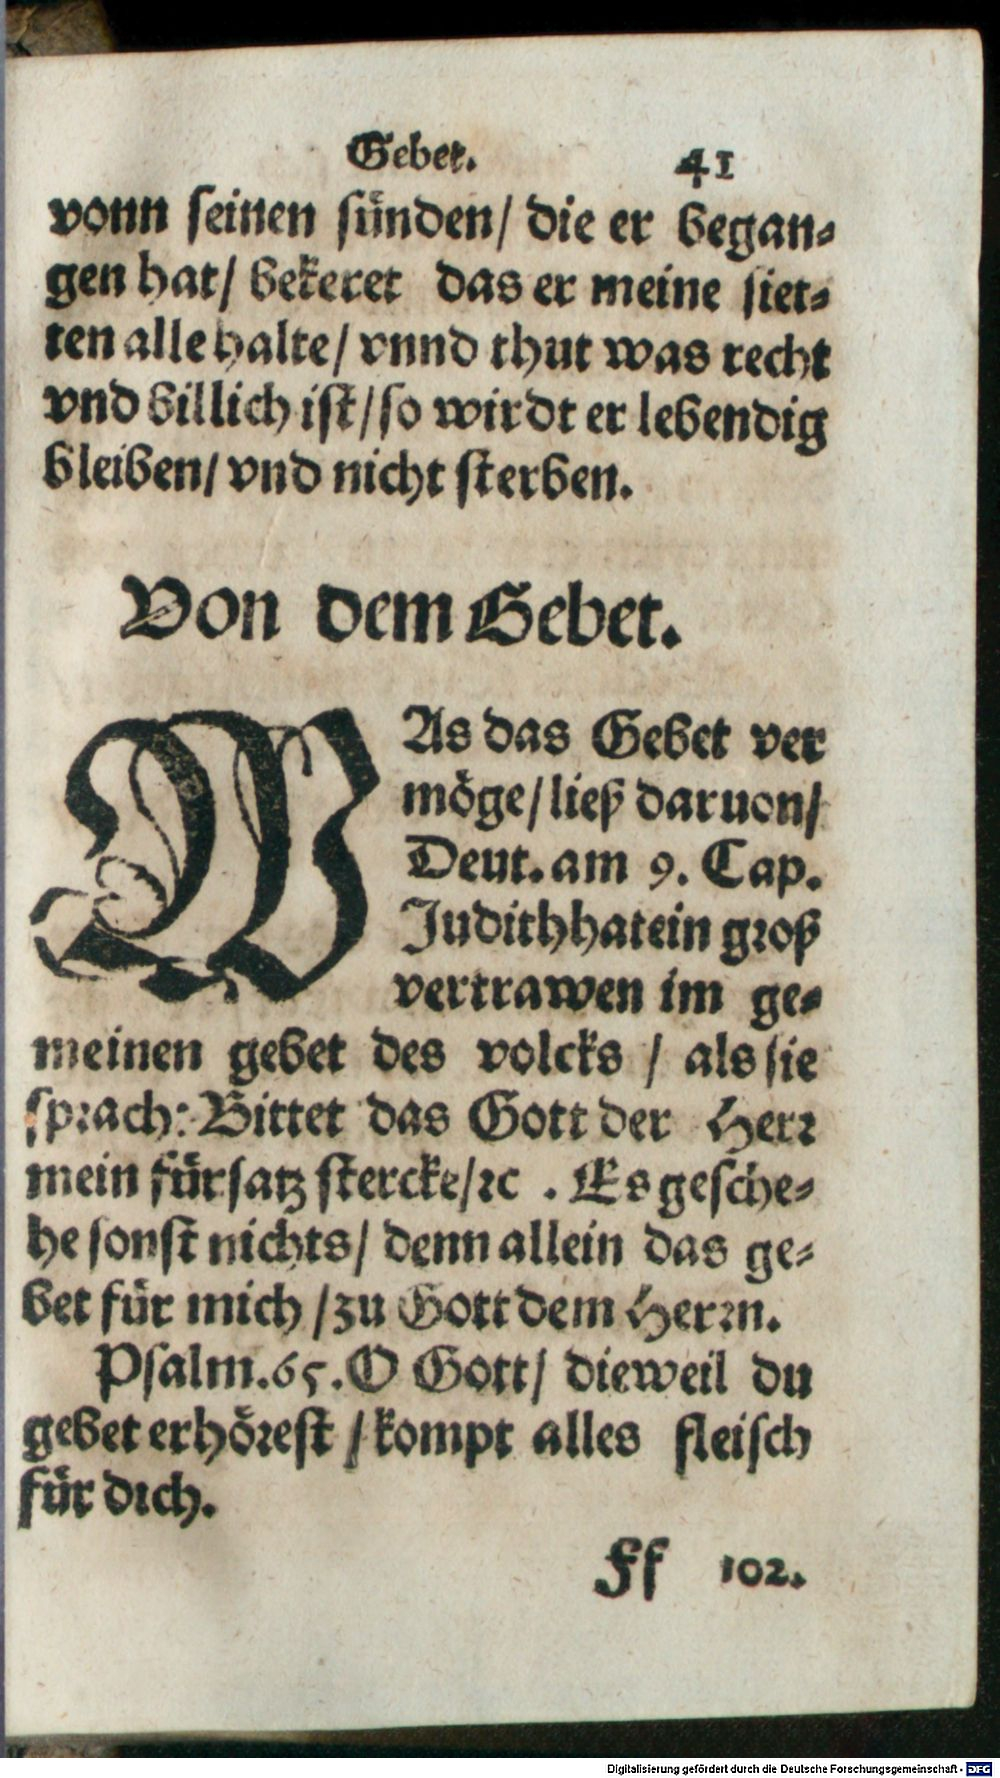 Gebet. 41
vonn seinen sünden/ die er began⸗
gen hat/ bekeret das er meine siet⸗
ten alle halte/ vnnd thut was recht
vnd billich ist/ so wirdt er lebendig
bleiben/ vnd nicht sterben.
Von dem Gebet.
WAs das Gebet ver
möge/ ließ daruon/
Deut. am 9. Cap.
Judith hat ein groß
vertrawen im ge⸗
meinen gebet des volcks / als sie
sprach: Bittet das Gott der Herr
mein fürsatz stercke/ ꝛc . Es gesche⸗
he sonst nichts/ denn allein das ge⸗
bet für mich / zu Gott dem Herrn.
Psalm. 65. O Gott/ dieweil du
gebet erhörest / kompt alles fleisch
für dich.
Ff 102.
Digitalisierung gefördert durch die Deutsche Forschungsgemeinschaft - DFG